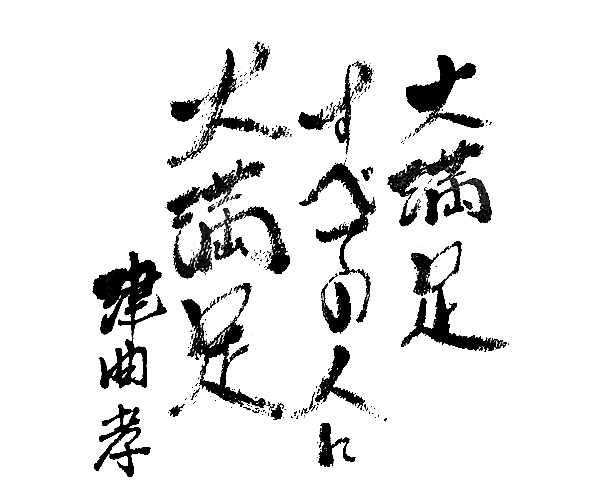 大満足
すべての人に
大満足
津曲孝